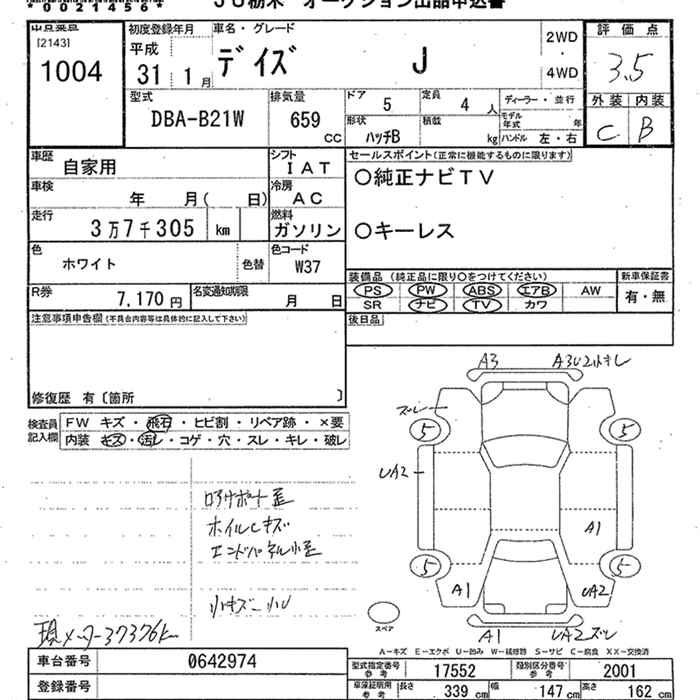 *0021456*
JU栃木 オークション出品申込書
[2143]
1004
初度登録年月
平成
31 1月
車名・グレード
デイズ J
2WD
・
4WD
評価点
3.5
外装 内装
C B
型式
DBA-B21W
排気量
659 CC
ドア 5
定員 4 人
形状 ハッチB
積載 kg
ディーラー・並行
モデル年式 年
ハンドル 左・右
車歴 自家用
シフト IAT
車検 年 月( 日)
冷房 AC
走行 3万7千305 km
燃料 ガソリン
色 ホワイト 色替
色コード W37
R券 7,170円
名変通知期限 月 日
セールスポイント(正常に機能するものに限ります)
○純正ナビTV
○キーレス
装備品 (純正品に限り○をつけてください)
PS PW ABS エアB AW
SR ナビ TV カワ
新車保証書
有・無
後日品
注意事項申告欄(不具合内容等は具体的に記入して下さい)
修復歴 有〔箇所 〕
検査員記入欄
FW キズ・飛石・ヒビ割・リペア跡・×要
内装 キズ・汚レ・コゲ・穴・スレ・キレ・破レ
ホイルキズ
小キズ 小U
現メーター37376k
A3
ズレ
5
5
UA2
A1
5
5
A1
UA2
A1
UA2ズレ
スペア
A-キズ E-エクボ U-凹み W-補修跡 S-サビ C-腐食 XX-交換済
車台番号 0642974
登録番号
型式指定番号 参考 17552
類別区分番号 参考 2001
車庫証明用 参考
長さ 339 cm
幅 147 cm
高さ 162 cm